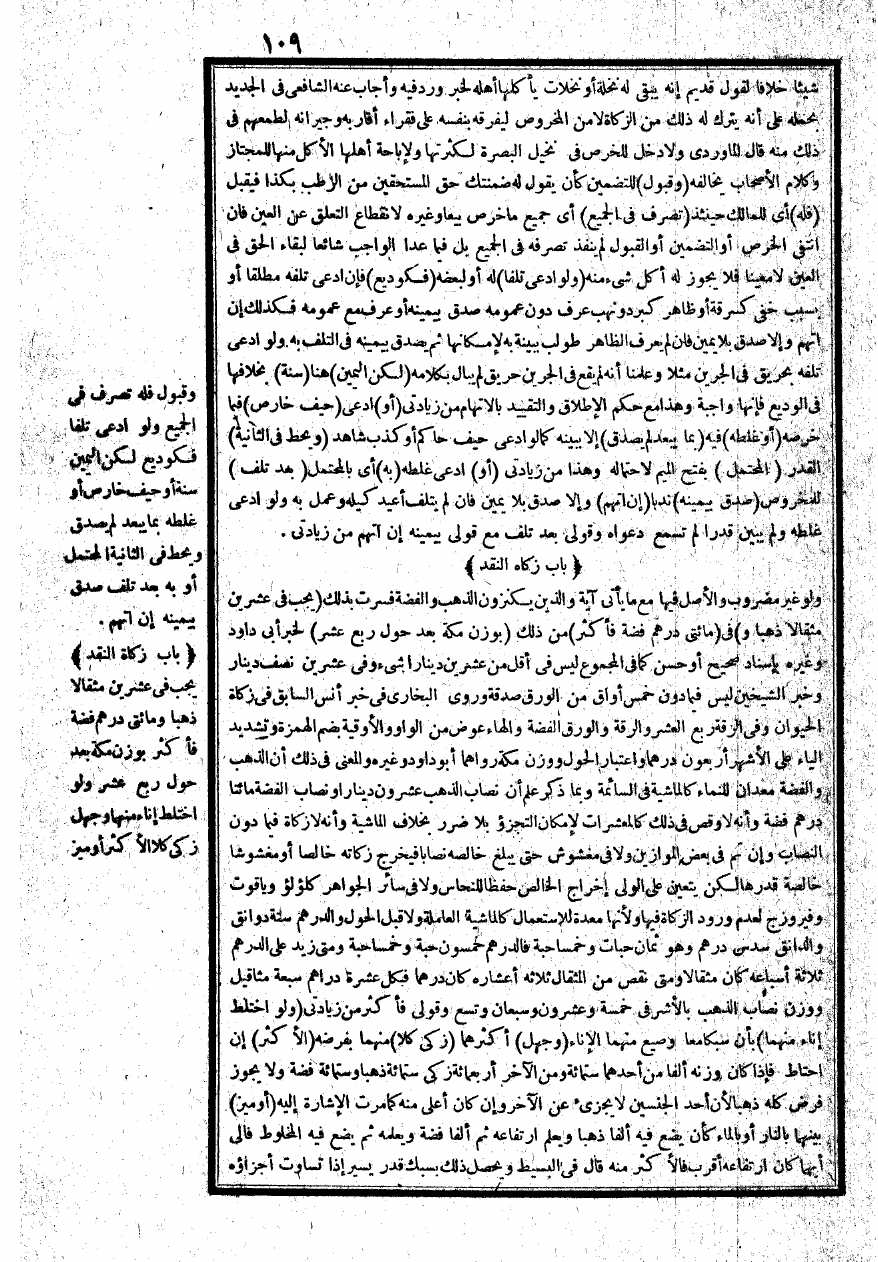 ١٠٩
شيئا خلافا لقول قديم إنه يبقى له نخلة أو نخلات يأكلها أهله لخبر ورد فيه وأجاب عنه الشافعى فى الجديد
بحمله على أنه يترك له ذلك من الزكاة لامن المخروص ليفرقه بنفسه على فقراء أقاربه وجيرانه لطمعهم فى
ذلك منه قال الماوردى ولا دخل للخرص فى نخيل البصرة لكثرتها ولإباحة أهلها الأكل منها للمجتاز
وكلام الأصحاب يخالفه (وقبول) للتضمين كأن يقول له ضمنتك حق المستحقين من الرطب بكذا فيقبل
(فله) أى للمالك حينئذ (تصرف فى الجميع) أى جميع ماخرص بيعا وغيره لانقطاع التعلق عن العين فان
انتفى الخرص أو التضمين أو القبول لم ينفذ تصرفه فى الجميع بل فيما عدا الواجب شائعا لبقاء الحق فى
العين لامعينا فلا يجوز له أكل شىء منه (ولو ادعى تلفا) له أولبعضه (فكوديع) فإن ادعى تلفه مطلقا أو
بسبب خفى كسرقة أو ظاهر كبرد ونهب عرف دون عمومه صدق بيمينه أو عرف مع عمومه فكذلك إن
اتهم وإلا صدق بلا يمين فان لم يعرف الظاهر طولب ببينة به لإمكانها ثم يصدق بيمينه فى التلف به ولو ادعى
تلفه بحريق فى الجرين مثلا وعلمنا أنه لم يقع فى الجرين حريق لم يبال بكلامه (لكن اليمين) هنا (سنة) بخلافها
فى الوديع فإنها واجبة وهذا مع حكم الإطلاق والتقييد بالاتهام من زيادتى (أو) ادعى (حيف خارص) فيما
خرصه (أو غلطه) فيه (بما يبعد لم يصدق) إلا ببينه كما لو ادعى حيف حاكم أو كذب شاهد (ويحط فى الثانية)
القدر (المحتمل) بفتح الميم لاحتماله وهذا من زيادتى (أو) ادعى غلطه (به) أى بالمحتمل (بعد تلف)
للمخروص (صدق بيمينه) ندبا (إن اتهم) وإلا صدق بلا يمين فان لم يتلف أعيد كيله وعمل به ولو ادعى
غلطه ولم يبين قدرا لم تسمع دعواه وقولى بعد تلف مع قولى بيمينه إن اتهم من زيادتى .
﴿ باب زكاه النقد ﴾
ولو غير مضروب والأصل فيها مع ما يأتى آية والذين يكنزون الذهب والفضة فسرت بذلك (يجب فى عشرين
مثقالا ذهبا و) فى (مائتى درهم فضة فأكثر) من ذلك (بوزن مكة بعد حول ربع عشر) لخبر أبى داود
وغيره بإسناد صحيح أو حسن كما فى المجموع ليس فى أقل من عشرين دينارا شىء وفى عشرين نصف دينار
وخبر الشيخين ليس فيما دون خمس أواق من الورق صدقة وروى البخارى فى خبر أنس السابق فى زكاة
الحيوان وفى الرقة ربع العشر والرقة والورق الفضة والهاء عوض من الواو والأوقية بضم الهمزة وتشديد
الياء على الأشهر أربعون درهما واعتبار الحول ووزن مكة رواهما أبو داود وغيره والمعنى فى ذلك أن الذهب
والفضة معدان للنماء كالماشية فى السائمة وبما ذكر علم أن نصاب الذهب عشرون دينارا ونصاب الفضة مائتا
درهم فضة وأنه لا وقص فى ذلك كالمعشرات لإمكان التجزؤ بلا ضرر بخلاف الماشية وأنه لا زكاة فيما دون
النصاب وإن تم فى بعض الموازين ولا فى مغشوش حتى يبلغ خالصه نصابا فيخرج زكاته خالصا أو مغشوشا
خالصة قدرها لكن يتعين على الولى إخراج الخالص حفظا للنحاس ولا فى سائر الجواهر كلؤلؤ وياقوت
وفيروزج لعدم ورود الزكاة فيها ولأنها معدة للاستعمال كالماشية العاملة ولا قبل الحول والدرهم ستة دوانق
والدانق سدس درهم وهو ثمان حبات وخمسا حبة فالدرهم خمسون حبة وخمسا حبة ومتى زيد على الدرهم
ثلاثة أسباعه كان مثقالا ومتى نقص من المثقال ثلاثه أعشاره كان درهما فكل عشرة دراهم سبعة مثاقيل
ووزن نصاب الذهب بالأشرفى خمسة وعشرون وسبعان وتسع وقولى فأكثر من زيادتى (ولو اختلط
إناء منهما) بأن سبكا معا وصيغ منهما الإناء (وجهل) أكثرهما (زكى كلا) منهما بفرضه (الأكثر) إن
احتاط فإذا كان وزنه ألفا من أحدهما ستمائة ومن الآخر أربعمائة زكى ستمائة ذهبا وستمائة فضة ولا يجوز
فرض كله ذهبا لأن أحد الجنسين لا يجزىء عن الآخر وإن كان أعلى منه كما مرت الإشارة إليه (أو ميز)
بينها بالنار أو بالماء كأن يضع فيه ألفا ذهبا ويعلم ارتفاعه ثم ألفا فضة ويعلمه ثم يضع فيه المخلوط فالى
أيهما كان ارتفاعه أقرب فالأكثر منه قال فى البسيط ويحصل ذلك بسبك قدر يسير إذا تساوت أجزاؤه
وقبول فله تصرف فى
الجميع ولو ادعى تلفا
فكوديع لكن اليمين
سنة أو حيف خارص أو
غلطه بما يبعد لم يصدق
ويحط فى الثانية المحتمل
أو به بعد تلف صدق
بيمينه إن اتهم .
﴿ باب زكاة النقد ﴾
يجب فى عشرين مثقالا
ذهبا ومائتى درهم فضة
فأكثر بوزن مكة بعد
حول ربع عشر ولو
اختلط إناء منهما وجهل
زكى كلا الأكثر أو ميز